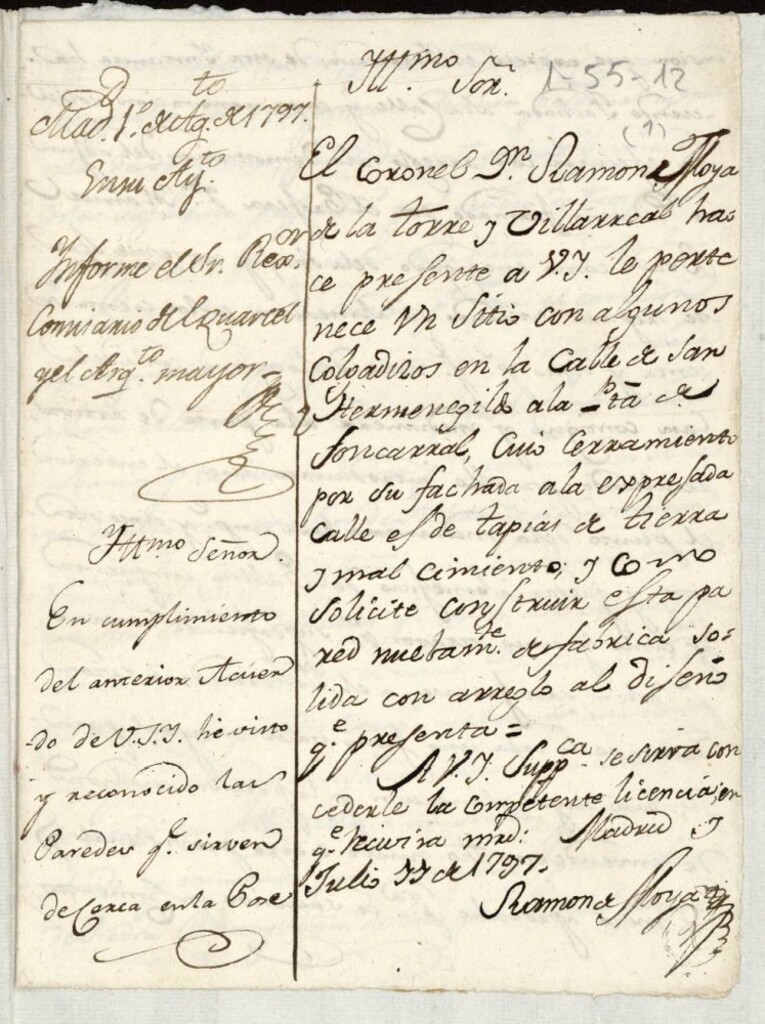 Illmo Sor.
1-55-12
(1)
Mad. 1.º de Ag.to de 1797.
En su Ay.to
Informe el Sr. Rexor.
Comisario del Quartel
y el Arq.to mayor
Yllmo Señor.
En cumplimiento
del anterior Acuer
do de V.S.Y. he visto
y reconocido las
Paredes q.e sirven
de Cerca en la Pose
El Coronel Dn. Ramon de Moya
de la torre y Villarreal ha=
ce presente a V.I. le perte
nece un sitio con algunos
Colgadizos en la Calle de San
Hermenegildo a la Pta de
foncarral, cuio cerramiento
por su fachada a la expresada
calle es de tapias de tierra
y mal cimiento, y como
solicite construir esta pa
red nuebam.te de fabrica so=
lida con arreglo al diseño
q.e presenta=
A V.I. Supp.ca se sirva con
cederle la competente licencia, en
q.e recivira mrd: Madrid y
Julio de 1797.
Ramon de Moya